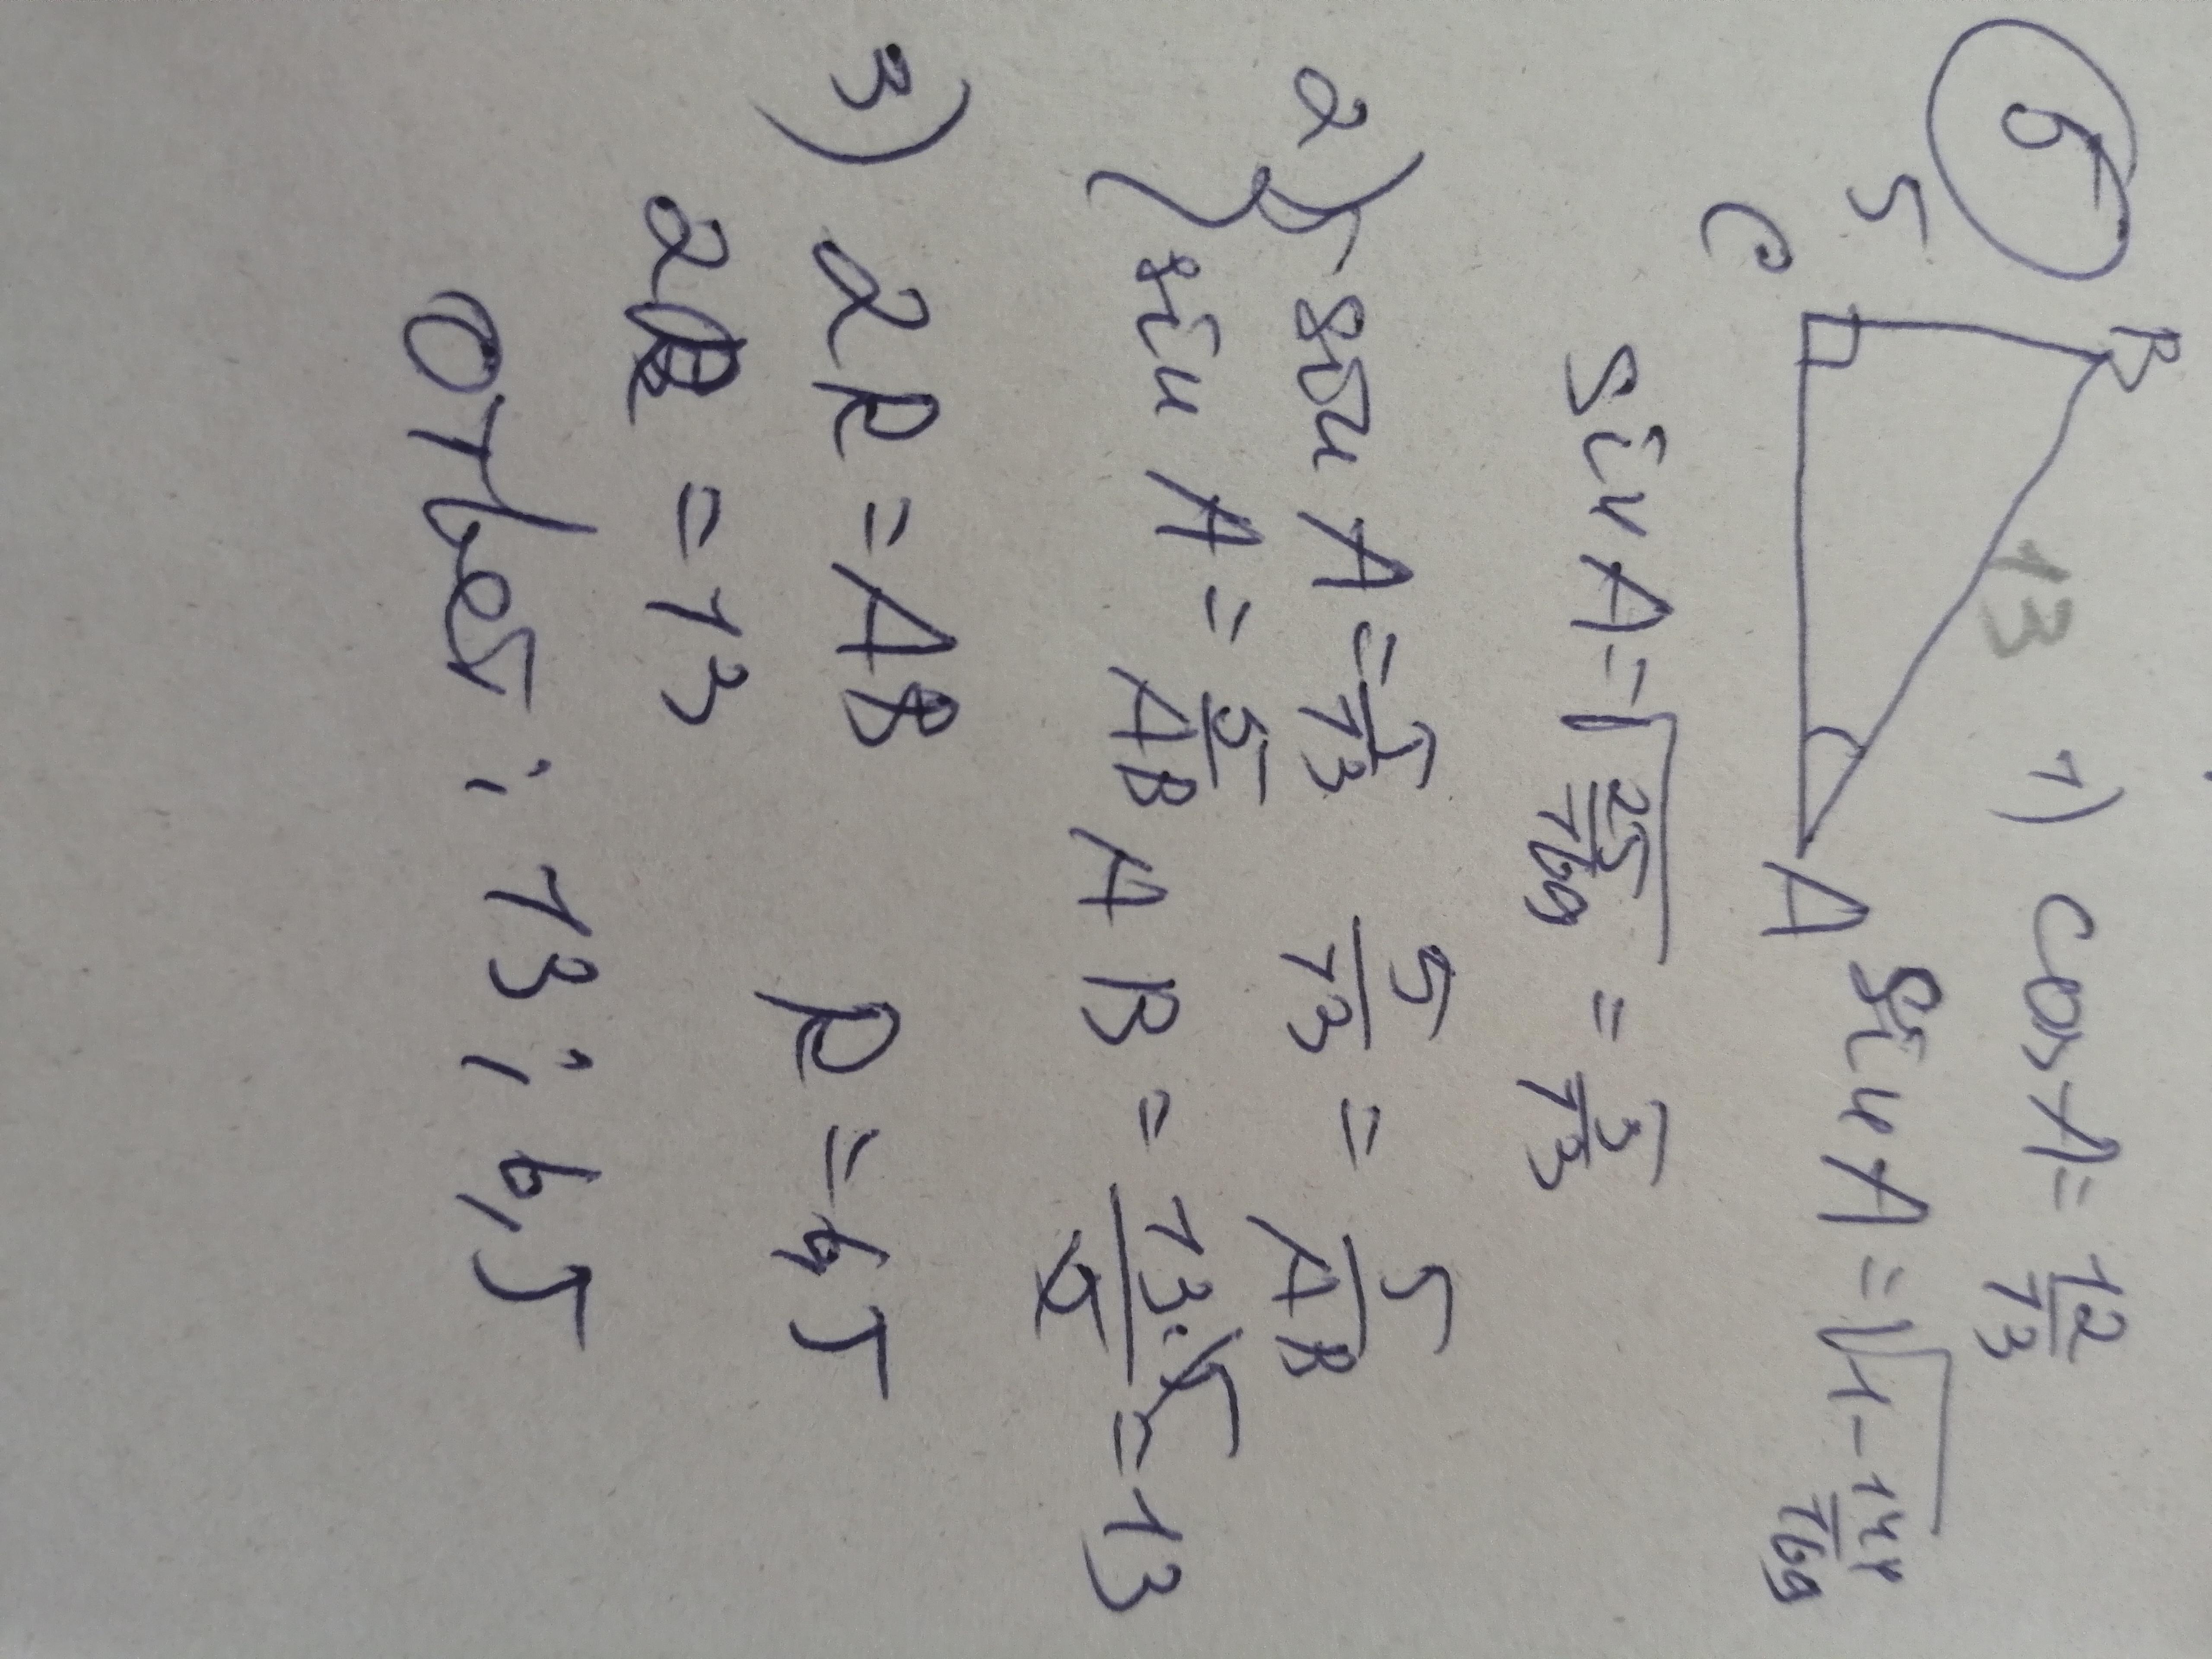 б
B
5
13
C
A
1) cos A = 12/13
sin A = √(1 - 144/169)
sin A = √(25/169) = 5/13
2) { sin A = 5/13
5/13 = 5/AB
sin A = 5/AB
AB = 13·5/5 = 13
3) 2R = AB
R = 6,5
2R = 13
Ответ: 13; 6,5